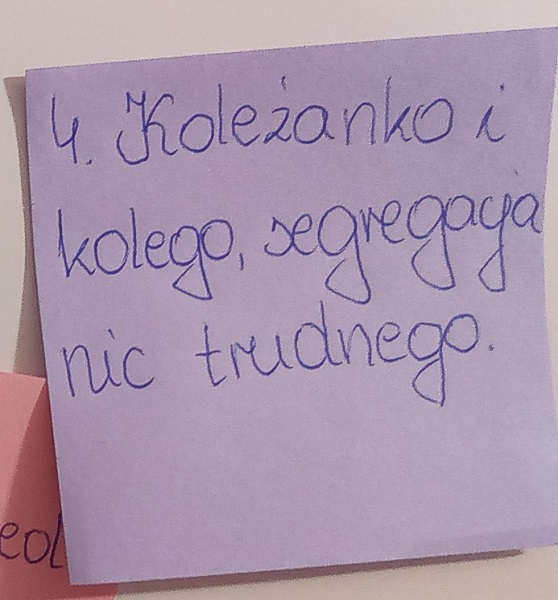 4. Koleżanko i
kolego, segregacja
nic trudnego.
eol